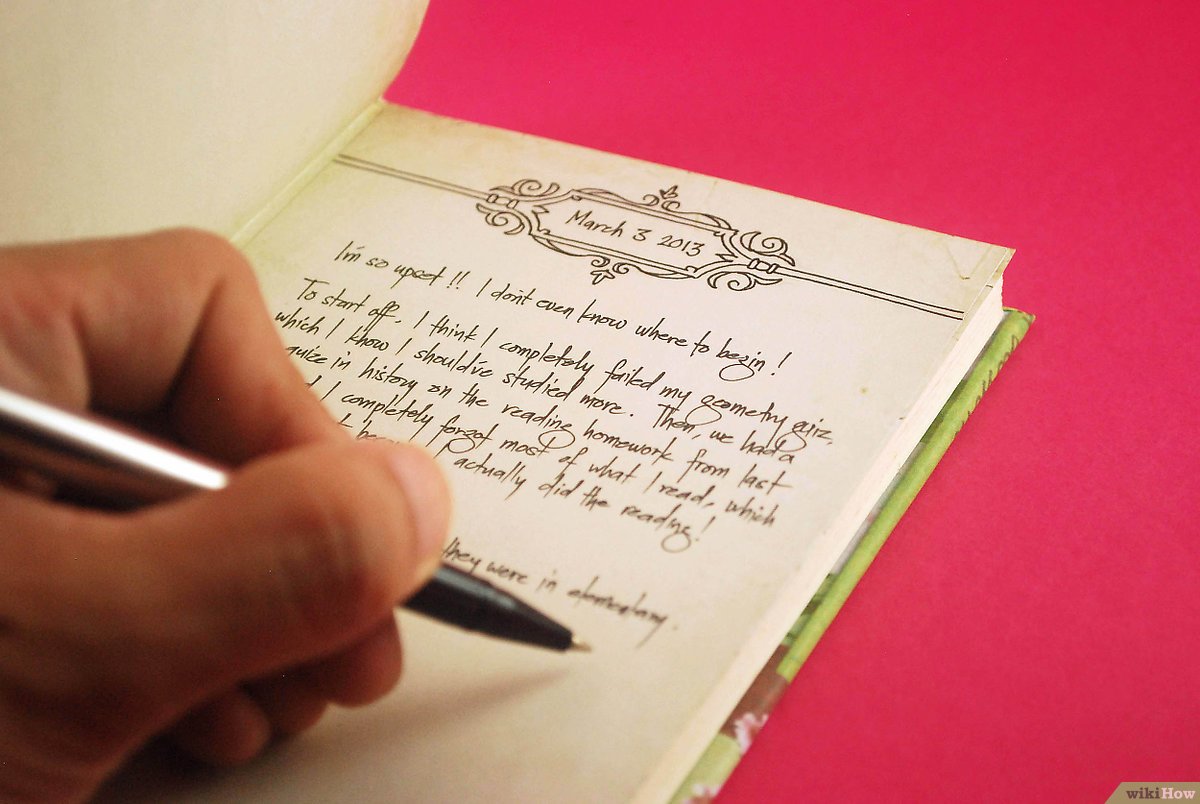 March 3 2013
I'm so upset !! I don't even know where to begin !
To start off, I think I completely failed my geometry quiz,
which I know I should've studied more. Then, we had a
quize in history on the reading homework from last
I completely forgot most of what I read, which
actually did the reading!
they were in elementary.
wikiHow